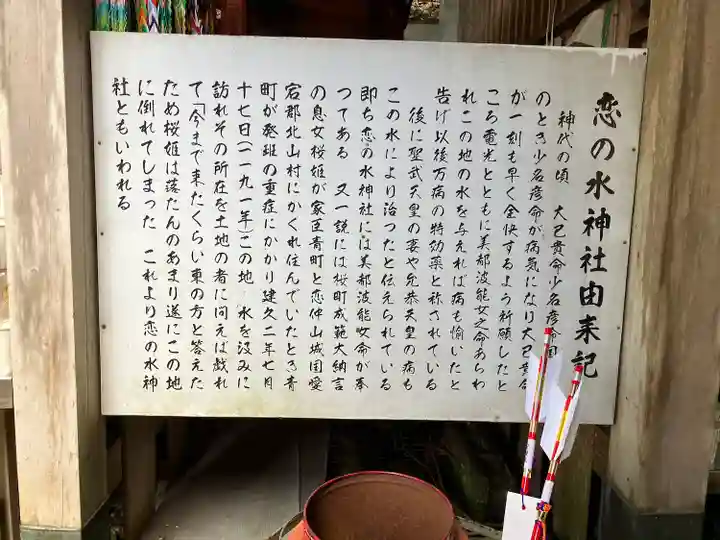 恋の水神社由来記
神代の頃　大己貴命少名彦命国
のとき少名彦命が病気になり大己貴命
が一刻も早く全快するよう祈願したと
ころ電光とともに美都波能女之命あらわ
れこの地の水を与えれば病も愉いたと
告げ以後万病の特効薬と称されている
後に聖武天皇の妻や允恭天皇の病も
この水により治つたと伝えられている
即ち恋の水神社には美都波能女命が奉
つてある　又一説には桜町成範大納言
の息女桜姫が家臣青町と恋仲山城国愛
宕郡北山村にかくれ住んでいたとき青
町が発班の重症にかかり建久二年七月
十七日(一一九一年)この地　水を汲みに
訪れその所在を土地の者に問えば戯れ
て「今まで来たくらい東の方と答えた
ため桜姫は落たんのあまり遂にこの地
に倒れてしまった　これより恋の水神
社ともいわれる